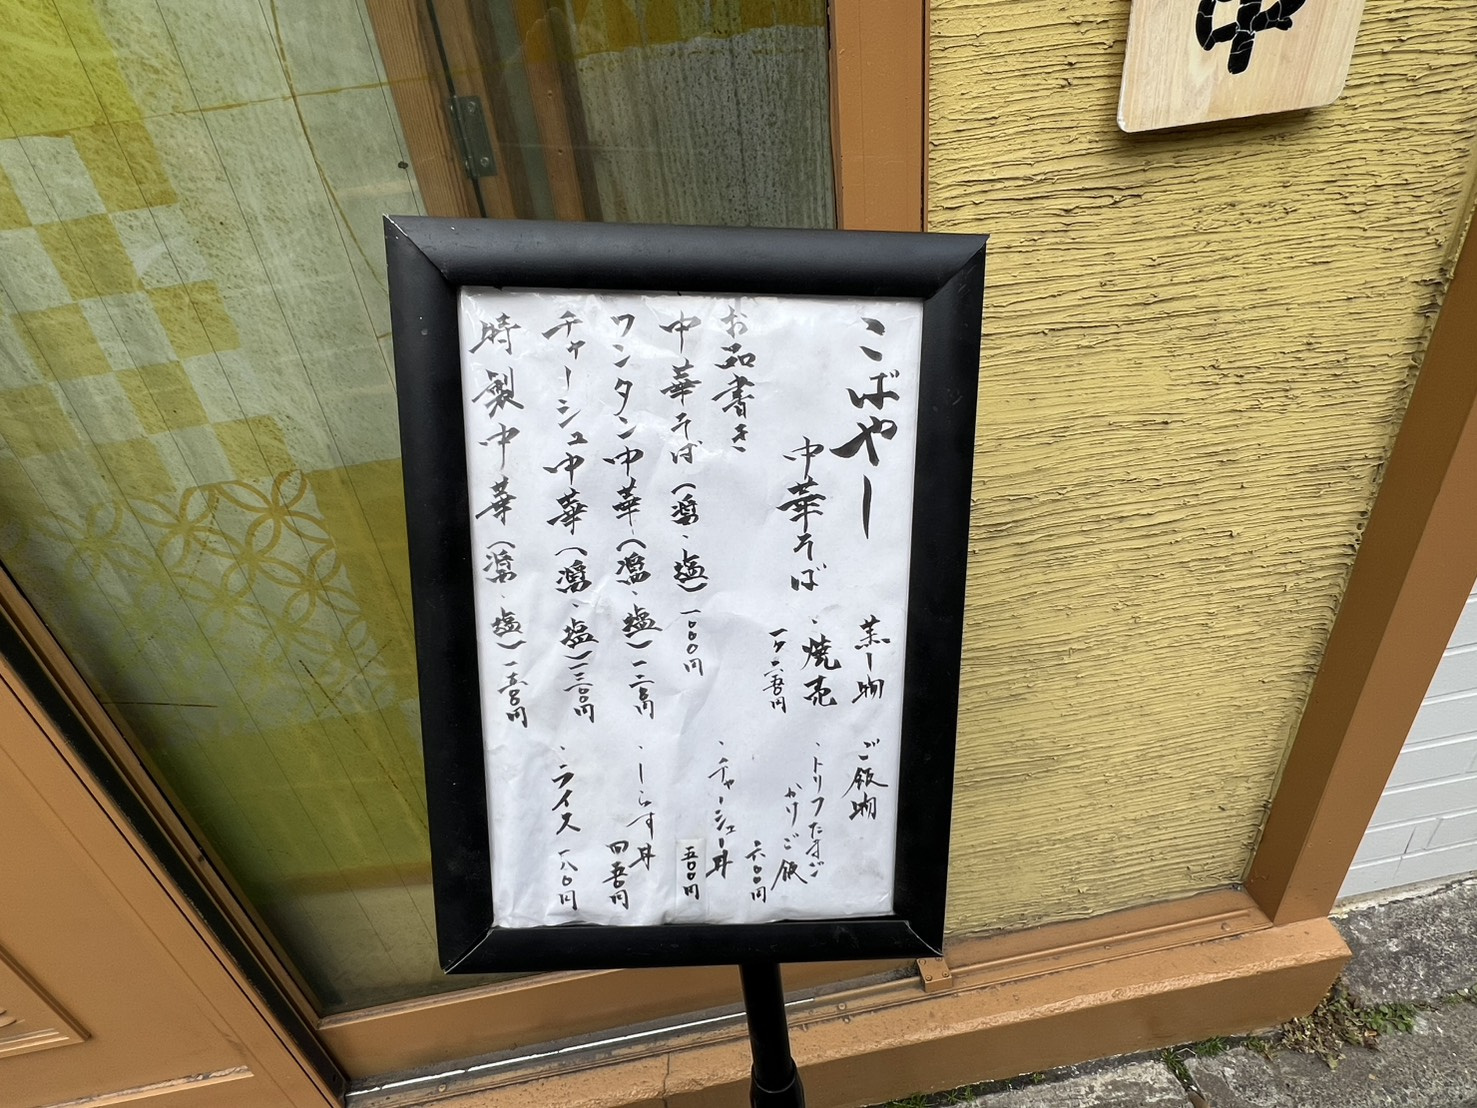 こばやし
中華そば
お品書き
中華そば(醤・塩)一〇〇〇円
ワンタン中華(醤・塩)一二〇〇円
チャーシュ中華(醤・塩)一三〇〇円
時製中華(醤・塩)一五〇〇円
蒸し物
・焼売
一ケ一五〇円
ご飯物
・トリフたまご
かけご飯
六〇〇円
・チャーシュー丼
五〇〇円
・しらす丼
四五〇円
・ライス 一八〇円
中